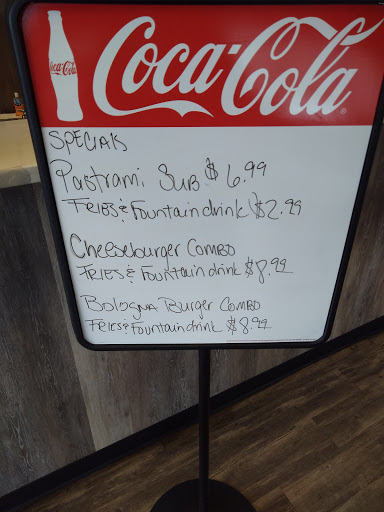 Coca-Cola
Coca-Cola
SPECIALS
Pastrami SUB $6.99
FRIES & Fountain drink $2.99
Cheeseburger COMBO
FRIES & Fountain drink $8.99
Bologna Burger COMBO
FRIES & Fountain drink $8.99